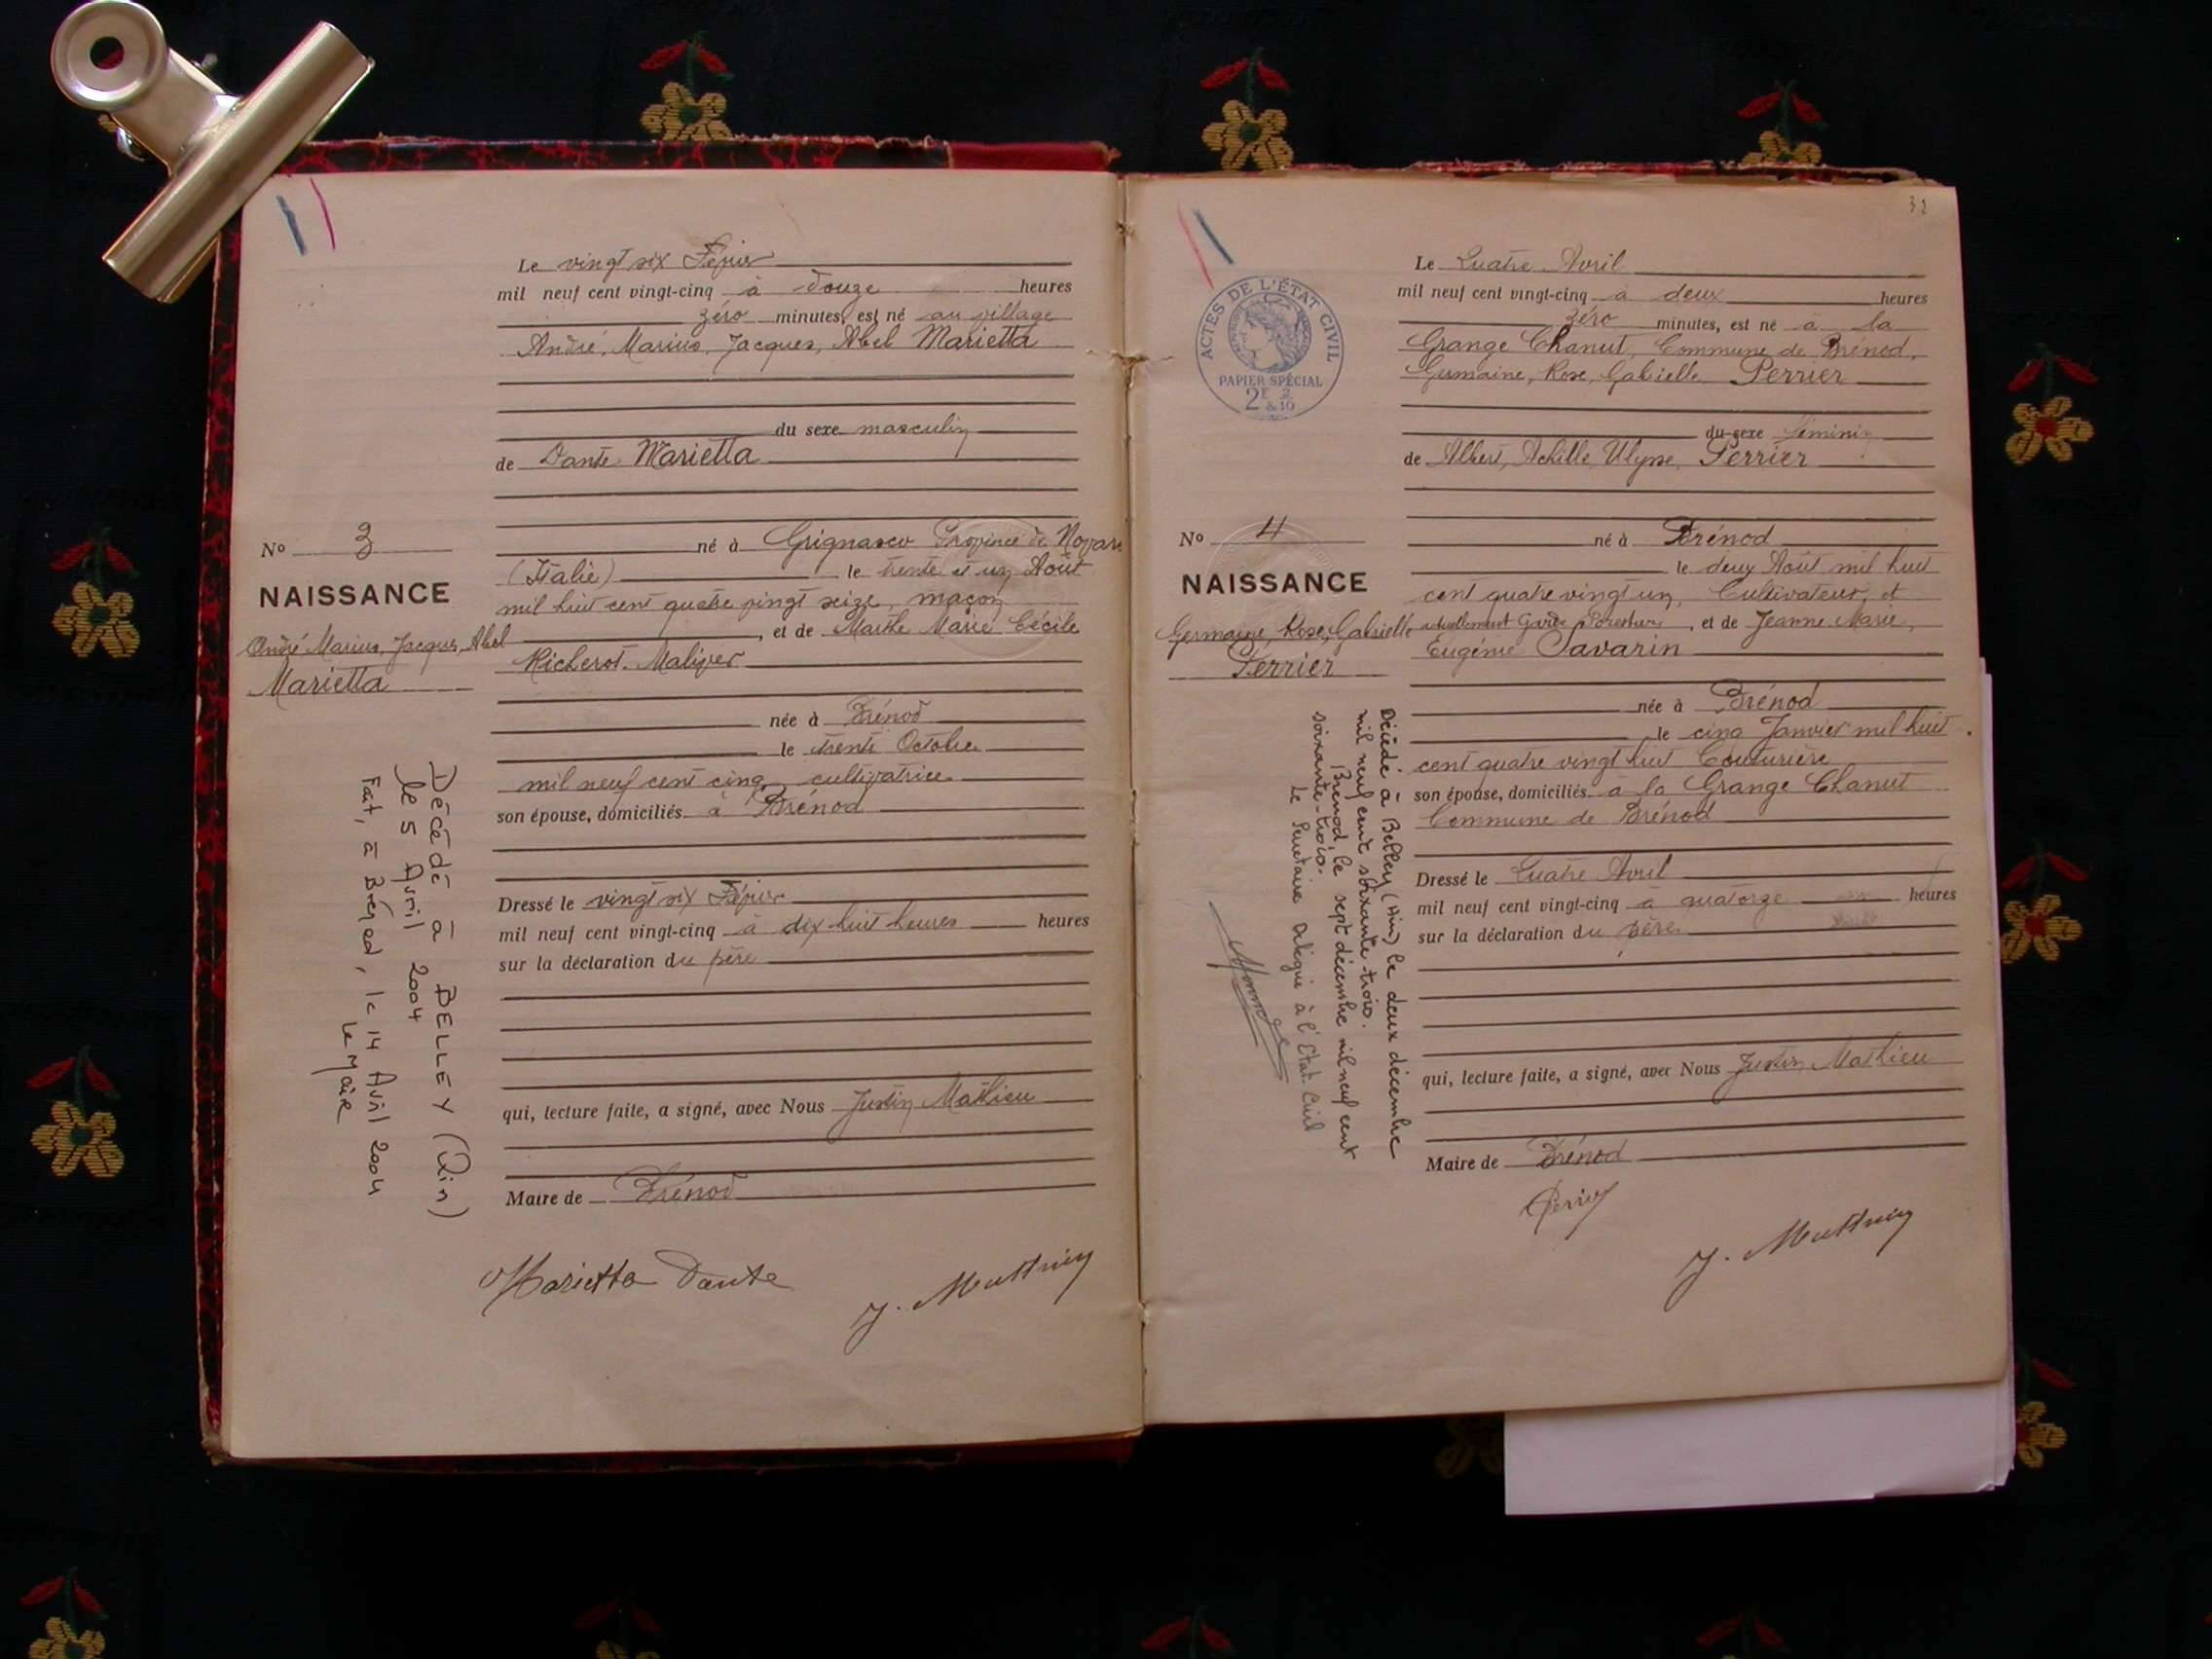 Le vingt six Février
mil neuf cent vingt-cinq à douze heures
zéro minutes, est né au village
André, Marius, Jacques, Abel Marietta
du sexe masculin
de Dante Marietta
né à Grignasco Province de Novare
(Italie) le trente et un Août
mil huit cent quatre vingt seize, maçon
, et de Marthe Marie Cécile
Richerot-Maliver
née à Brénod
le trente Octobre
mil neuf cent cinq cultivatrice
son épouse, domiciliés à Brénod
Dressé le vingt six Février
mil neuf cent vingt-cinq à dix huit heures heures
sur la déclaration du père
qui, lecture faite, a signé, avec Nous Justin Mathieu
Maire de Brénod
Marietta Dante
No 3
NAISSANCE
André Marius, Jacques, Abel
Marietta
Décédé à BELLEY (Ain)
le 5 Avril 2004
Fait, à Brénod, le 14 Avril 2004
Le Maire
32
ACTES DE L'ÉTAT CIVIL
PAPIER SPÉCIAL
2F 2
& 10
Le Quatre Avril
mil neuf cent vingt-cinq à deux heures
zéro minutes, est né à la
Grange Chanut, Commune de Brénod,
Germaine, Rose, Gabrielle Perrier
du sexe féminin
de Albert, Achille, Ulysse, Perrier
né à Brénod
le deux Août mil huit
cent quatre vingt un, Cultivateur, et
actuellement Garde Forestier, et de Jeanne Marie,
Eugénie Savarin
née à Brénod
le cinq Janvier mil huit
cent quatre vingt huit Couturière
son épouse, domiciliés à la Grange Chanut
Commune de Brénod
Dressé le Quatre Avril
mil neuf cent vingt-cinq à quatorze heures
sur la déclaration du père
qui, lecture faite, a signé, avec Nous Justin Mathieu
Maire de Brénod
No 4
NAISSANCE
Germaine, Rose, Gabrielle
Perrier
Décédé à Belley (Ain) le deux décembre
mil neuf cent soixante-trois.
Brénod, le sept décembre mil neuf cent
soixante-trois.
Le Secrétaire délégué à l'Etat-Civil